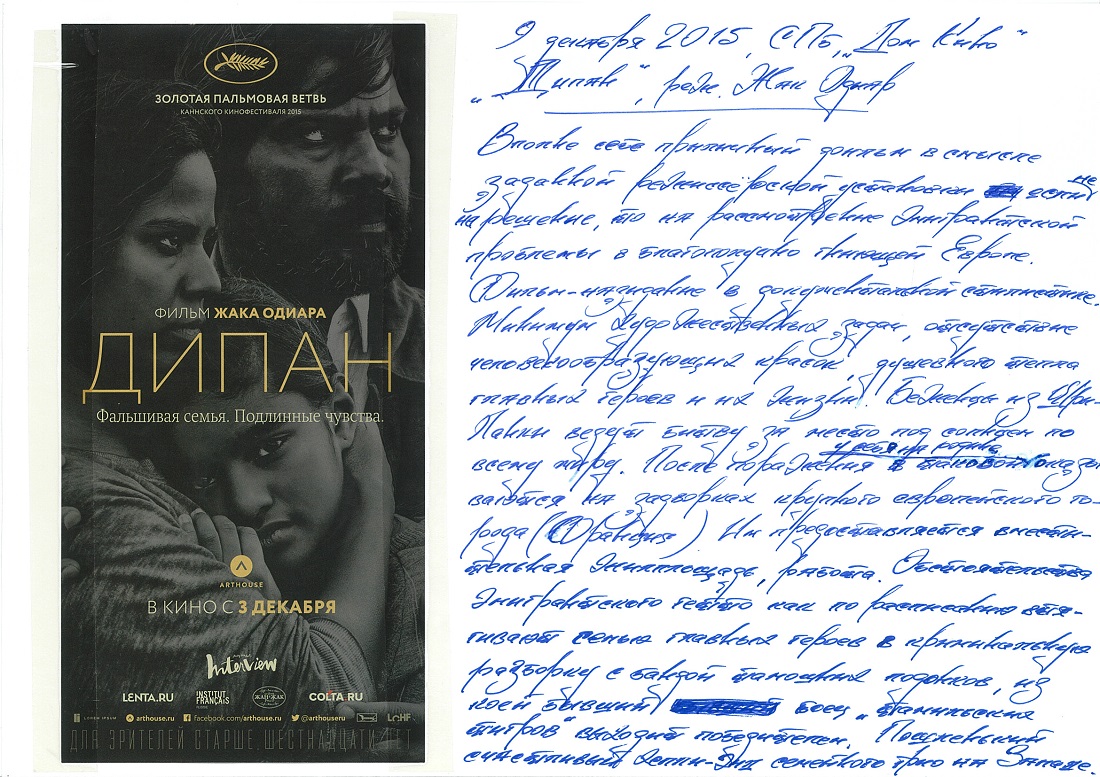 ЗОЛОТАЯ ПАЛЬМОВАЯ ВЕТВЬ
КАННСКОГО КИНОФЕСТИВАЛЯ 2015
ФИЛЬМ ЖАКА ОДИАРА
ДИПАН
Фальшивая семья. Подлинные чувства.
ARTHOUSE
В КИНО С 3 ДЕКАБРЯ
Interview
LENTA.RU INSTITUT FRANÇAIS ЖАН-ЖАК COLTA.RU
LOREM IPSUM arthouse.ru facebook.com/arthouse.ru @arthouseru
ДЛЯ ЗРИТЕЛЕЙ СТАРШЕ ШЕСТНАДЦАТИ ЛЕТ
9 декабря 2015, СПб, „Дом Кино“
„Дипан“, реж. Жак Одиар
Вполне себе приличный фильм в смысле
заданной режиссёрской установки если не
на решение, то на рассмотрение эмигрантской
проблемы в благополучно гниющей Европе.
Фильм-назидание в документальной стилистике.
Минимум художественных задач, отсутствие
человекообразующих красок, душевного тепла
главных героев и их жизни. Беженцы из Шри-
Ланки ведут битву за место под солнцем по
всему миру. После поражения у себя на родине оказы-
ваются на задворках крупного европейского го-
рода (Франция). Им предоставляется вмести-
тельная жилплощадь, работа. Обстоятельства
эмигрантского гетто как по расписанию втя-
гивают семью главных героев в криминальную
разборку с бандой тамошних подонков, из
коей бывший боец „тамильских
тигров“ выходит победителем. Пошленький
счастливый хеппи-энд семейного трио на Западе.